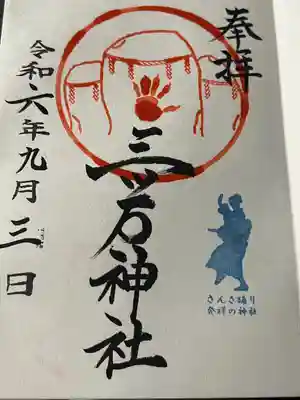 奉拝
三ツ石神社
さんさ踊り
発祥の神社
令和六年九月三日